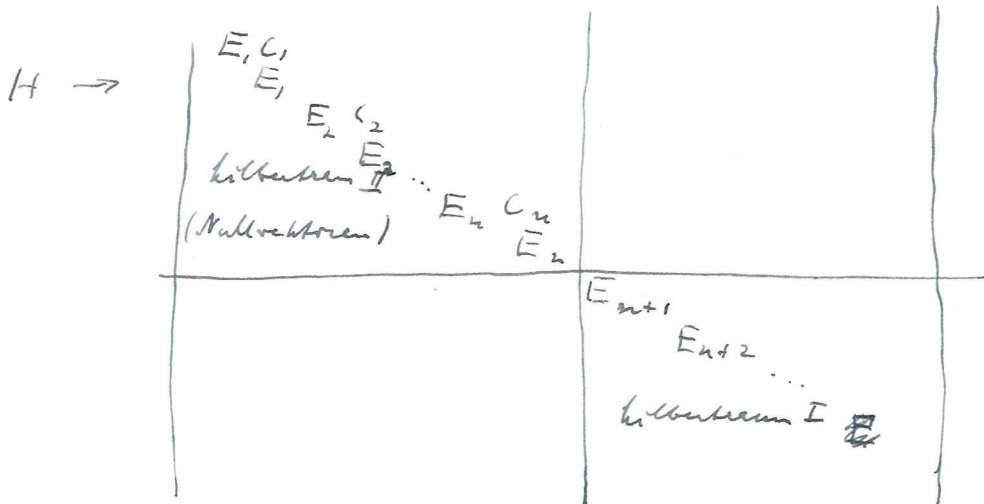 E₁ C₁
H → E₁
E₂ C₂
E₂
Hilbertraum II ...
E_n C_n
(Nullvektoren)
E_n
E_{n+1}
E_{n+2}
...
Hilbertraum I